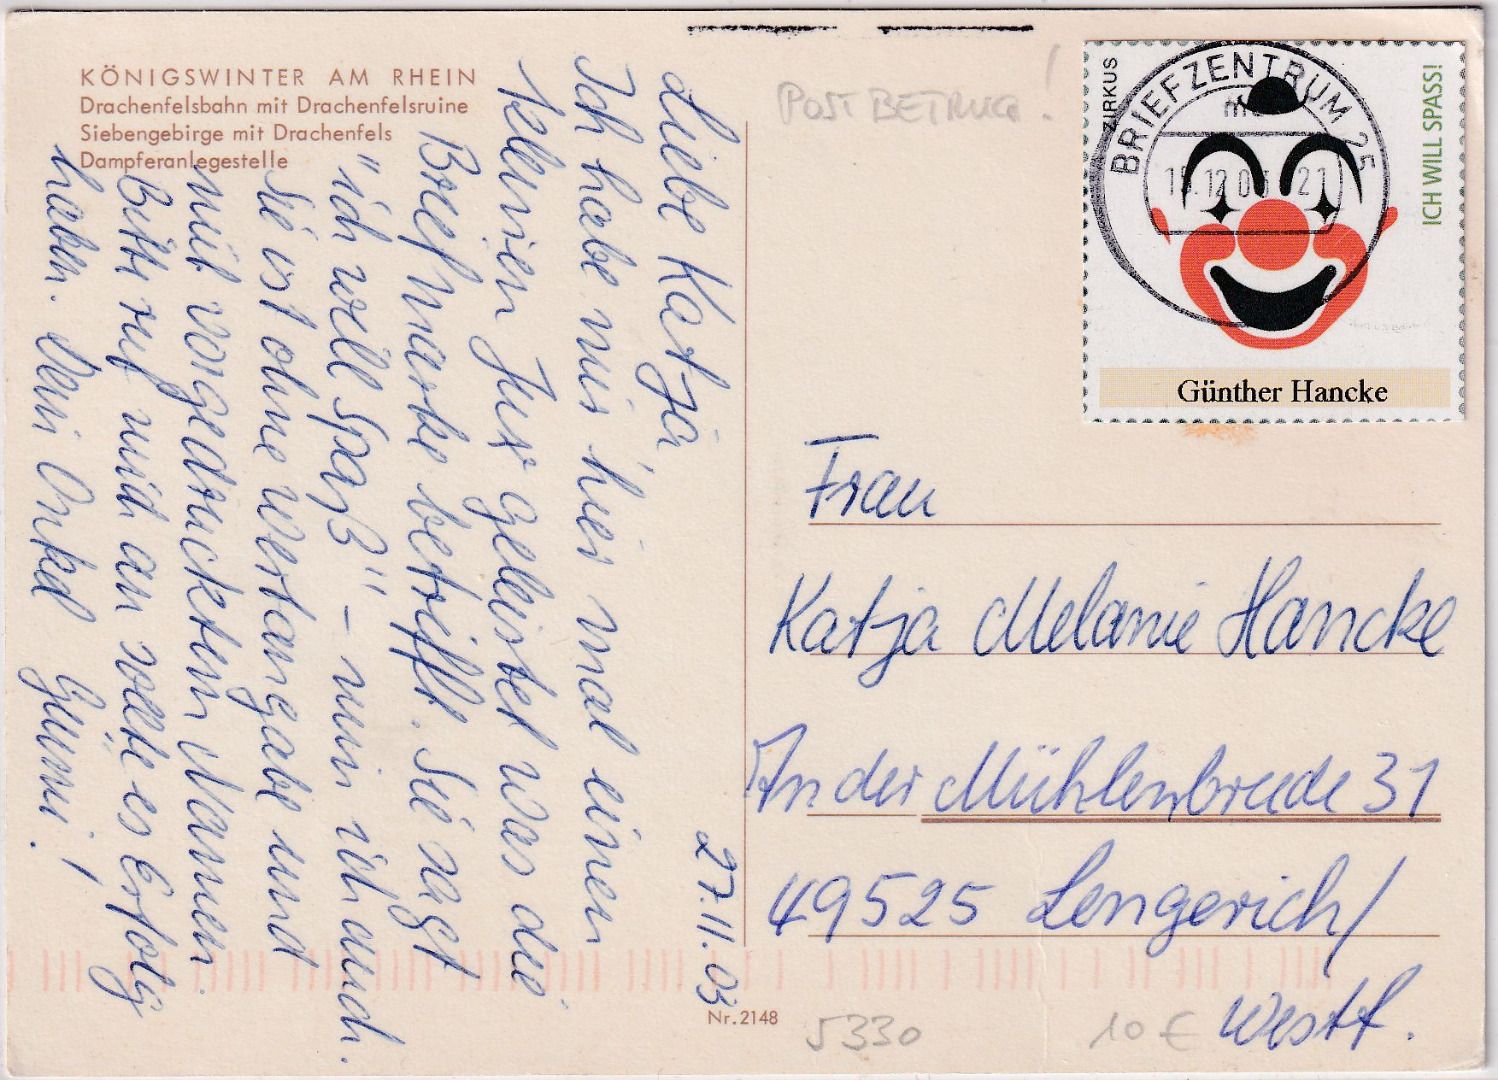 KÖNIGSWINTER AM RHEIN
Drachenfelsbahn mit Drachenfelsruine
Siebengebirge mit Drachenfels
Dampferanlegestelle
27.11.03
Liebe Katja
Ich habe mir hier mal einen
kleinen Jux geleistet was die
Briefmarke betrifft. Sie sagt
"ich will Spaß" – nun ich auch.
Sie ist ohne Wertangabe und
mit vorgedruckten Namen.
Bitte ruf mich an sollte es Erfolg
haben. Dein Onkel Günni!
POSTBETRUG!
ZIRKUS
ICH WILL SPASS!
BRIEFZENTRUM 25
12.03 21
Günther Hancke
Frau
Katja Melanie Hancke
An der Mühlenbreede 31
49525 Lengerich/
Westf.
Nr. 2148
5330
10 €